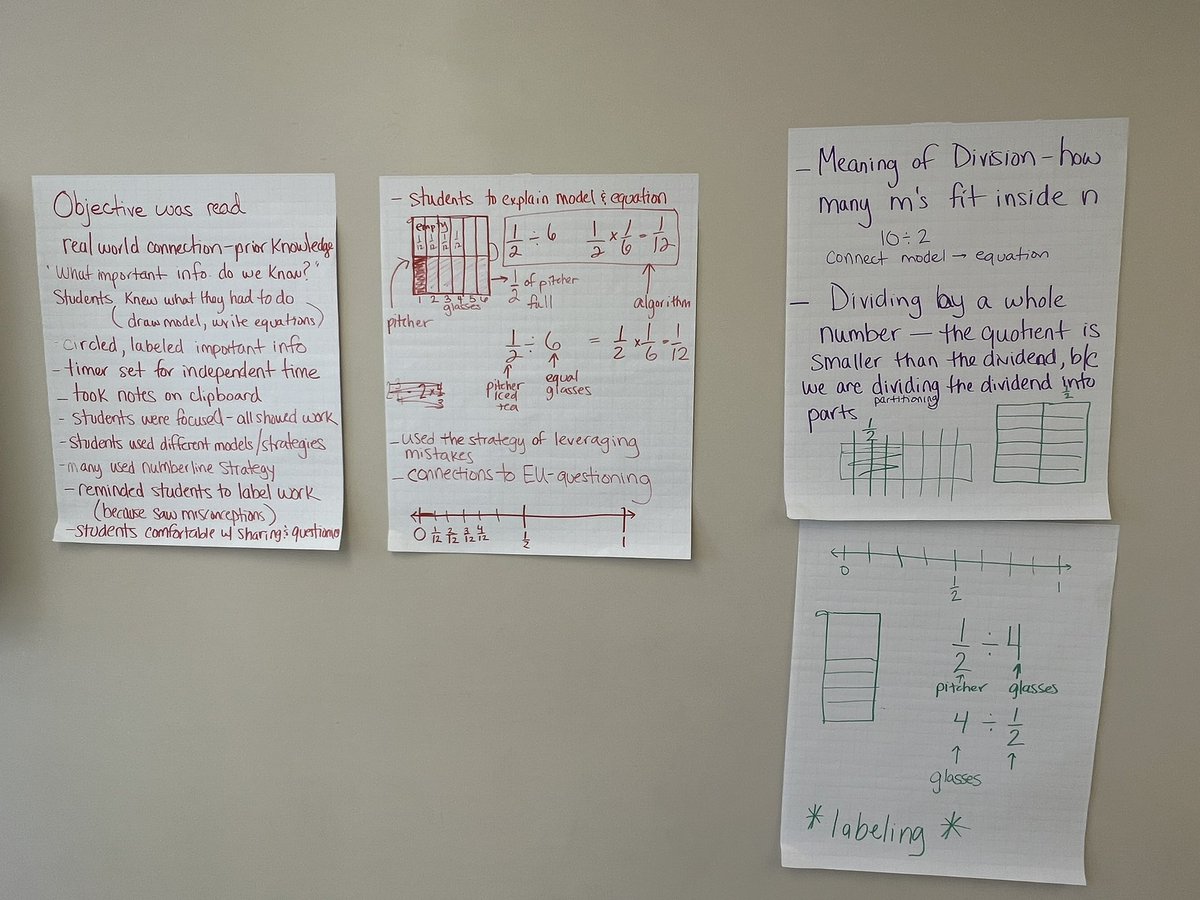 Objective was read
real world connection-prior Knowledge
"What important info do we Know?"
Students Knew what they had to do
(draw model, write equations)
-circled, labeled important info
-timer set for independent time
- took notes on clipboard
- students were focused - all showed work
-students used different models/strategies
-many used numberline strategy
- reminded students to label work
(because saw misconceptions)
-students comfortable w/ sharing & questions
- students to explain model & equation
empty
1/12 1/12 1/12 1/12
1/2 ÷ 6 1/2 × 1/6 = 1/12
1 2 3 4 5 6
glasses
1/2 of pitcher
full
algorithm
pitcher
1/2 ÷ 6 = 1/2 × 1/6 = 1/12
pitcher
iced
tea
equal
glasses
-used the strategy of leveraging
mistakes
-connections to EU-questioning
0 1/12 2/12 3/12 4/12 1/2 1
- Meaning of Division - how
many m's fit inside n
10÷2
Connect model → equation
- Dividing by a whole
number — the quotient is
smaller than the dividend, b/c
we are dividing the dividend into
parts
partitioning
1/2
1/2
0 1/2 1
1/2 ÷ 4
pitcher glasses
4 ÷ 1/2
glasses
* labeling *